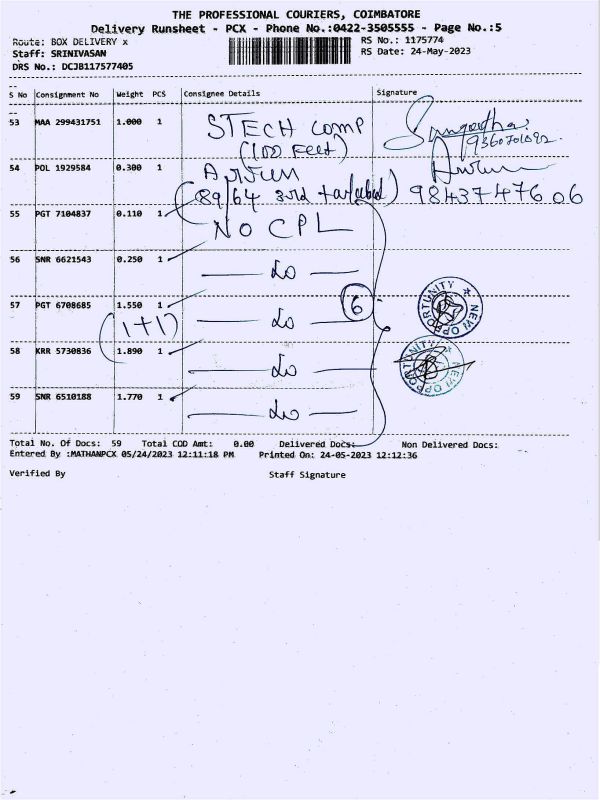 THE PROFESSIONAL COURIERS, COIMBATORE
Delivery Runsheet - PCX - Phone No.:0422-3505555 - Page No.:5
Route: BOX DELIVERY x
RS No.: 1175774
Staff: SRINIVASAN
RS Date: 24-May-2023
DRS No.: DCJB117577405
S No Consignment No Weight PCS Consignee Details Signature
53 MAA 299431751 1.000 1 STECH comp
(100 Feet)
54 POL 1929584 0.300 1 Arjun
(89/64 3rd) 98437 47606
55 PGT 7104837 0.110 1 NO CPL
56 SNR 6621543 0.250 1 Do
57 PGT 6708685 1.550 1 Do 6
(1+1)
58 KRR 5730836 1.890 1 Do
59 SNR 6510188 1.770 1 Do
NEW OPPORTUNITY
NEW OPPORTUNITY
Total No. Of Docs: 59 Total COD Amt: 0.00 Delivered Docs: Non Delivered Docs:
Entered By :MATHANPCX 05/24/2023 12:11:18 PM Printed On: 24-05-2023 12:12:36
Verified By Staff Signature